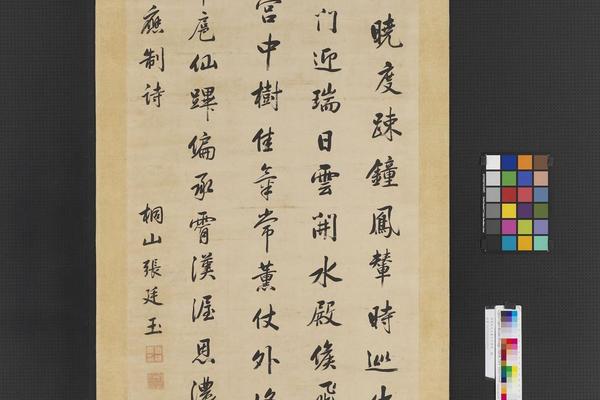 曉度疎鐘鳳輦時巡
門迎瑞日雲開水殿候飛
宮中樹佳氣常薰仗外
扈仙蹕編承霄漢渥恩濃
應制詩
桐山張廷玉